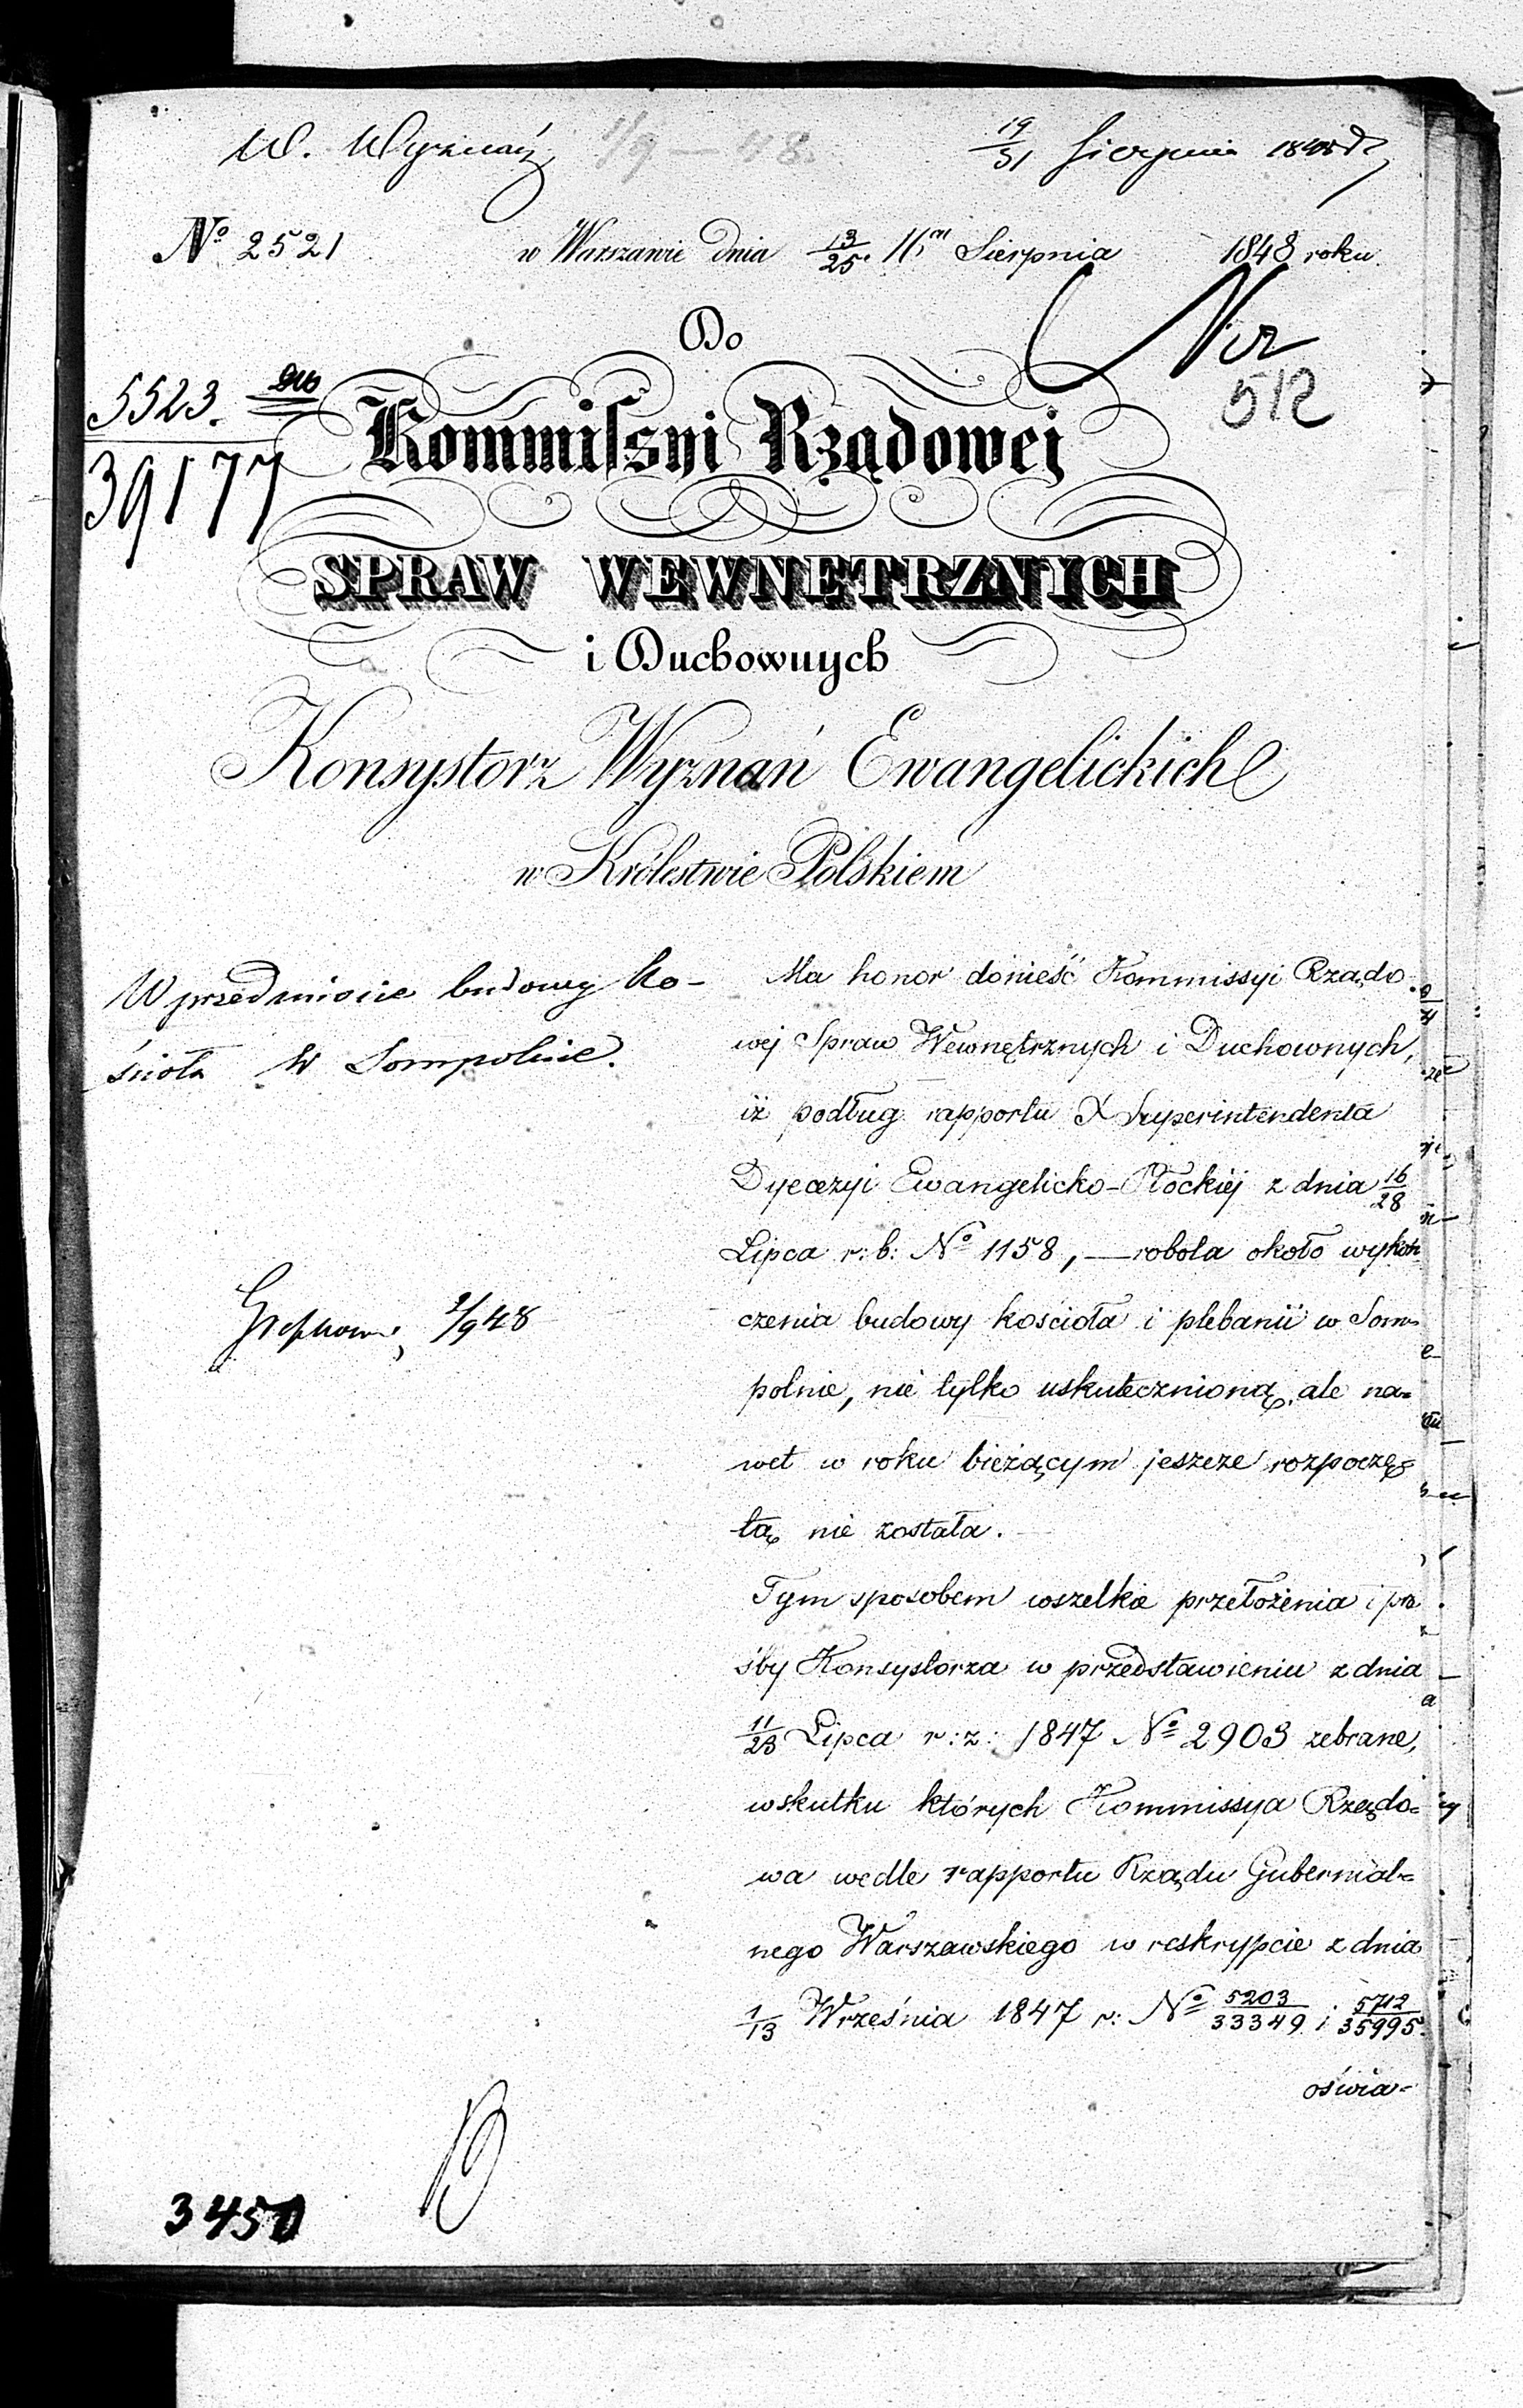 W. Wyznań 1/9 – 48. 19/31 Sierpnia 1848
No 2521 w Warszawie dnia 13/25. Sierpnia 1848 roku.
Do
5523.
39177
512
Kommissyi Rządowej
SPRAW WEWNĘTRZNYCH
i Duchownych
Konsystorz Wyznań Ewangelickich
w Królestwie Polskiem
W przedmiocie budowy ko-
ścioła w Sompolnie.
1/9 48
Ma honor donieść Kommissyi Rządo
wej Spraw Wewnętrznych i Duchownych,
iż podług rapportu X Superintendenta
Dyecezyi Ewangelicko-Płockiéj z dnia 16/28
Lipca r: b: No 1158, — robota około wykoń
czenia budowy kościoła i plebanii w Som=
polnie, nie tylko uskutecznioną, ale na=
wet w roku bieżącym jeszcze rozpoczę=
tą nie została.
Tym sposobem wszelkie przełożenia i pro
śby Konsystorza w przedstawieniu z dnia
11/23 Lipca r: z: 1847 No 2903 zebrane,
wskutku których Kommissya Rządo=
wa wedle rapportu Rządu Gubernial=
nego Warszawskiego w reskrypcie z dnia
1/13 Września 1847 r: No 5203/33349 i 5712/35995.
oświa=
3450